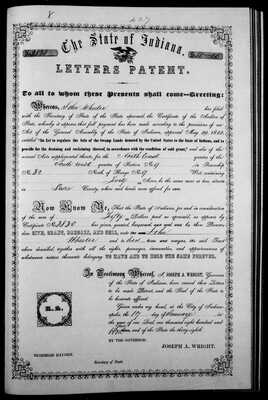 The State of Indiana.
LETTERS PATENT.
To all to whom these Presents shall come—Greeting:
Whereas, John Wheeler has filed
with the Secretary of State of the State aforesaid, the Certificate of the Auditor of
State, whereby it appears that full payment has been made according to the provisions of an
Act of the General Assembly of the State of Indiana, approved May 29, 1852,
entitled "An Act to regulate the sale of the Swamp Lands donated by the United States to the State of Indiana, and to
provide for the draining and reclaiming thereof, in accordance with the condition of said grant," and also of the
several Acts supplemental thereto, for the North East quarter of the
South West quarter of Section No. 9 in Township
No. 32 of Range No. 9 W. containing
Forty Acres, be the same more or less, situate
in Lake County, when said lands were offered for sale.
Now Know Ye, That the State of Indiana, for and in consideration
of the sum of Fifty Dollars paid as aforesaid, as appears by
Certificate No. has granted, bargained,
and by these Presents,
does GIVE, GRANT, BARGAIN, AND SELL, to the said John
Wheeler and to his heirs and assigns, the said Tract
above described, together with all the rights, privileges, immunities, and appurtenances of
whatsoever nature thereunto belonging, TO HAVE AND TO HOLD THE SAME FOREVER.
In Testimony Whereof, I, JOSEPH A. WRIGHT, Governor
of the State of Indiana, have caused these Letters
to be made Patent, and the Seal of the State to
be hereunto affixed.
Given under my hand, at the City of Indian-
apolis, the day of January in
the year of our Lord, one thousand eight hundred and
fifty and of the State the thirty-eighth.
BY THE GOVERNOR:
JOSEPH A. WRIGHT.
Secretary of State.